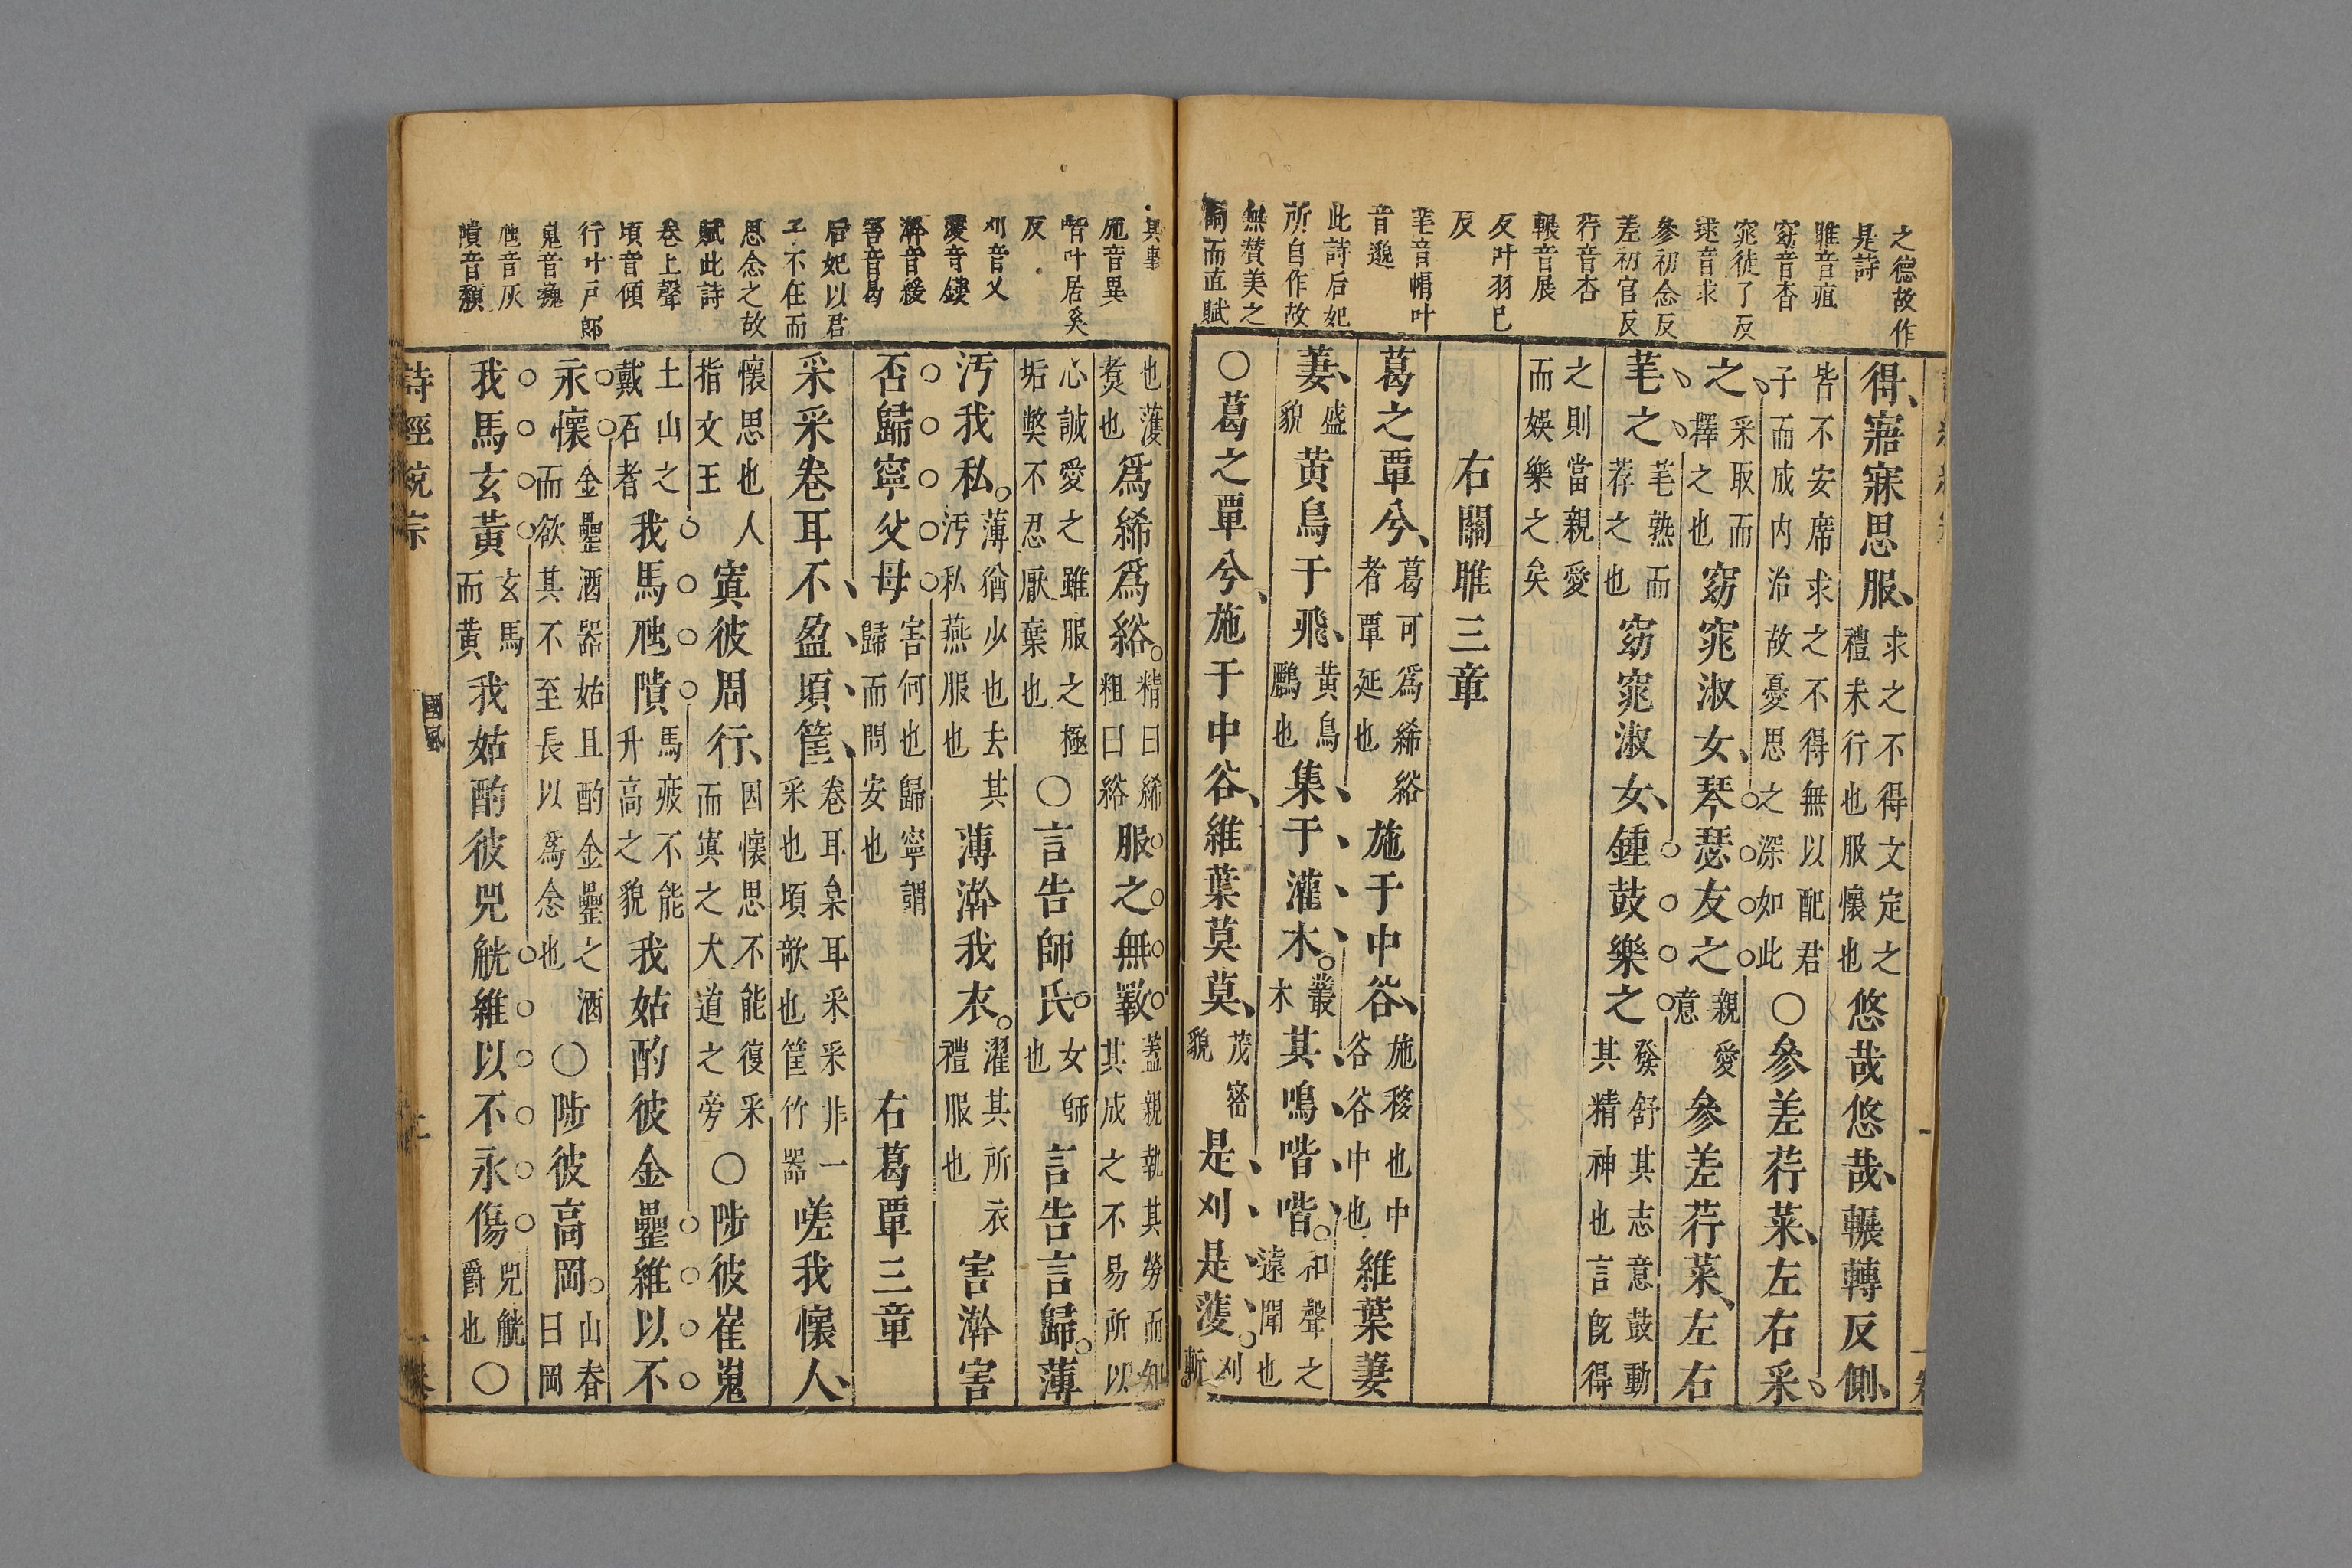 之德故作
是詩
雎音疽
窈音杳
窕徒了反
逑音求
參初念反
差初官反
荇音杏
輾音展
反叶羽已
反
芼音帽叶
音邈
此詩后妃
所自作故
無贊美之
詞而直賦
得寤寐思服求之不得文定之禮未行也服懷也悠哉悠哉輾轉反側
皆不安席求之不得無以配君子而成内治故憂思之深如此○參差荇菜左右采
之采取而擇之也窈窕淑女琴瑟友之親愛意參差荇菜左右
芼之芼熟而荐之也窈窕淑女鍾鼓樂之發舒其志意鼓動其精神也言旣得
之則當親愛而娛樂之矣
右關雎三章
葛之覃兮葛可爲絺綌者覃延也施于中谷施移也中谷谷中也維葉萋
萋盛貌黄鳥于飛黄鳥鸝也集于灌木叢木其鳴喈喈和聲之遠聞也
○葛之覃兮施于中谷維葉莫莫茂密貌是刈是濩刈斬
其事
施音異
斁叶居奚
反
刈音乂
濩音鑊
澣音緩
害音曷
后妃以君
子不在而
思念之故
賦此詩
卷上聲
頃音傾
行叶戸郎
嵬音巍
虺音灰
隤音頹
也濩煑也爲絺爲綌精曰絺粗曰綌服之無斁蓋親執其勞而知其成之不易所以
心誠愛之雖服之極垢弊不忍厭棄也○言告師氏女師也言告言歸薄
汚我私薄猶少也去其汚私燕服也薄澣我衣濯其所衣禮服也害澣害
否歸寧父母害何也歸寧謂歸而問安也右葛覃三章
采采卷耳不盈頃筐卷耳枲耳采采非一采也頃欹也筐竹器嗟我懷人
懷思也人指文王寘彼周行因懷思不能復采而寘之大道之旁○陟彼崔嵬
土山之戴石者我馬虺隤馬疲不能升高之貌我姑酌彼金罍維以不
永懷金罍酒器姑且酌金罍之酒而欲其不至長以爲念也○陟彼高岡山脊曰岡
我馬玄黄玄馬而黄我姑酌彼兕觥維以不永傷兕觥爵也○
詩經統宗
國風